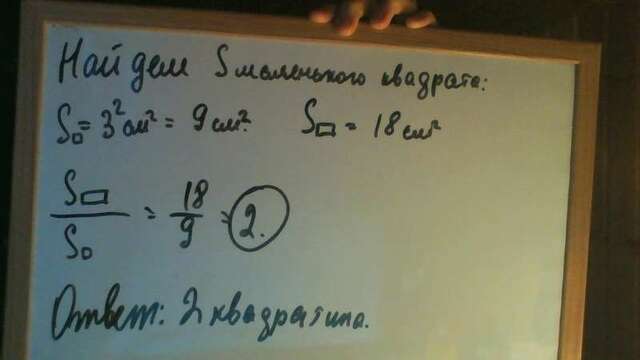 Найдем S маленького квадрата:
S□ = 3² см² = 9 см². S▭ = 18 см²
S▭/S□ = 18/9 = 2.
Ответ: 2 квадратика.